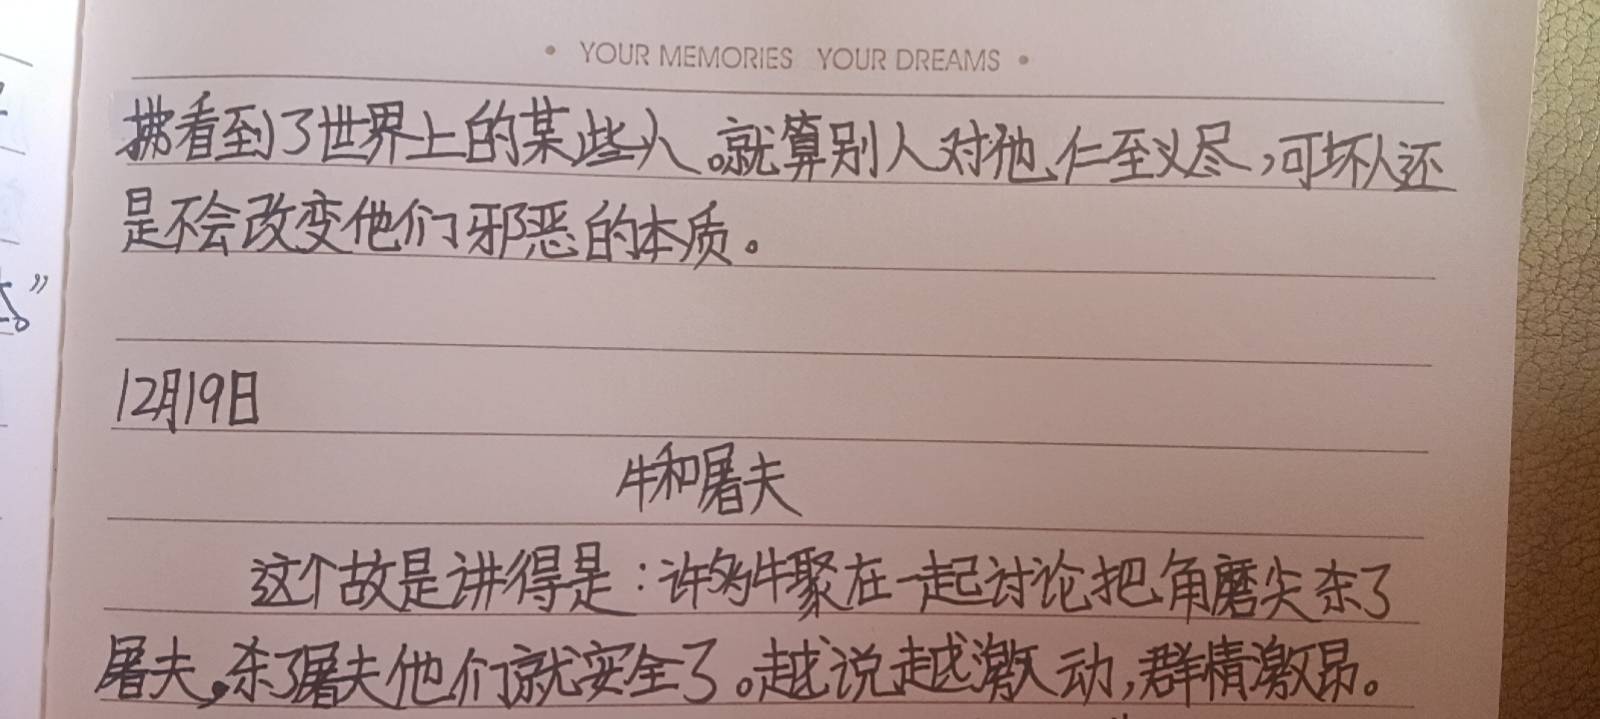 • YOUR MEMORIES YOUR DREAMS •
拂看到了世界上的某些人。就算别人对他仁至义尽，可坏人还
是不会改变他们邪恶的本质。
12月19日
牛和屠夫
这个故是讲得是：许多牛聚在一起讨论把角磨尖杀了
屠夫。杀了屠夫他们就安全了。越说越激动，群情激昂。